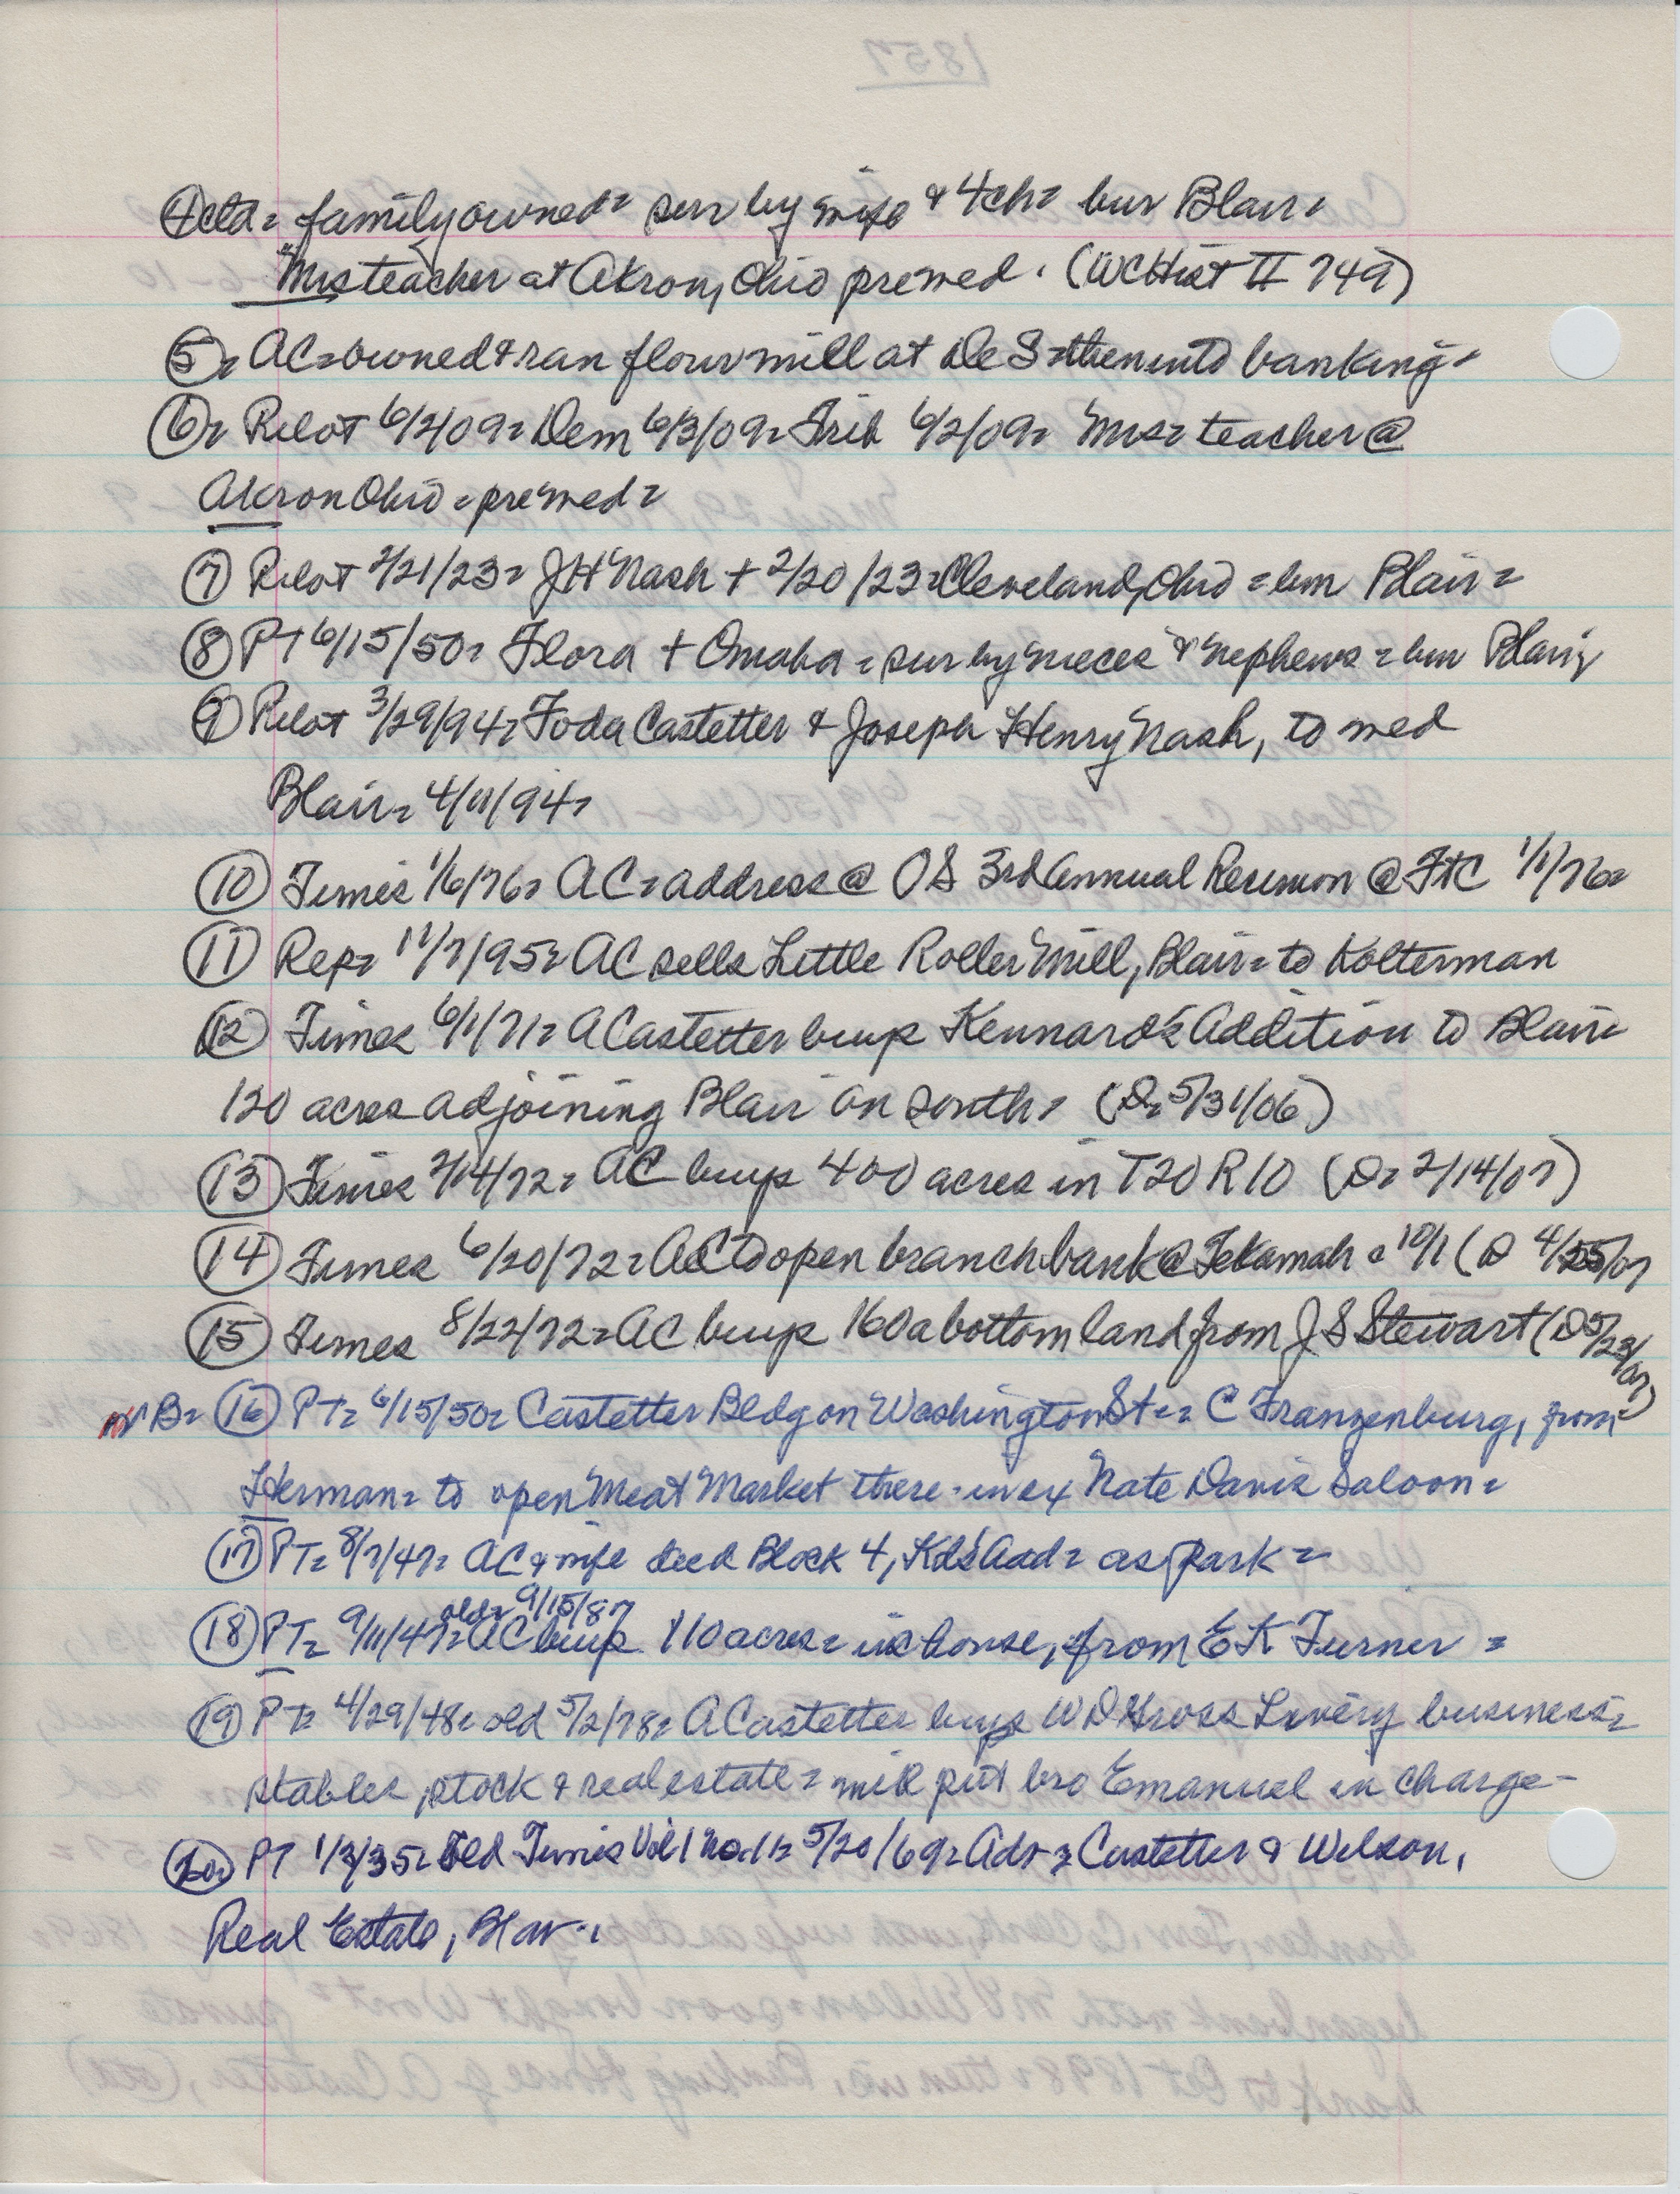 ④ctd= family owned= sur by wife & 4ch= bur Blair=
Mrs teacher at Akron, Ohio premed. (WCHist II 749)
⑤= AC= owned & ran flour mill at De S= then into banking=
⑥= Pilot 6/2/09= Dem 6/3/09= Trib 6/2/09= Mrs= teacher @
Akron Ohio = premed=
⑦ Pilot 2/21/23= JH Nash + 2/20/23= Cleveland, Ohio = bur Blair=
⑧ PT 6/15/50= Flora + Omaha = sur by nieces & nephews = bur Blair=
⑨ Pilot 3/29/94= Foda Castetter & Joseph Henry Nash, to med
Blair= 4/11/94=
⑩ Times 1/6/76= AC= address @ OS 3rd Annual Reunion @ FtC 1/1/76=
⑪ Rep= 11/7/95= AC sells Little Roller Mill, Blair= to Kolterman
⑫ Times 6/1/71= A Castetter buys Kennard's Addition to Blair=
120 acres adjoining Blair on south= (D= 5/31/06)
⑬ Times 2/14/72= AC buys 400 acres in T20 R10 (D= 2/14/07)
⑭ Times 6/20/72= AC to open branch bank @ Tekamah = 10/1 (D 4/25/07
⑮ Times 8/22/72= AC buys 160a bottom land from J S Stewart (D 5/23/07)
NB= ⑯ PT= 6/15/50= Castetter Bldg on Washington St= C Franzenburg, from
Herman= to open Meat Market there= in ex Nate Davis Saloon=
⑰ PT= 8/7/47= AC & wife deed Block 4, Kd's Add= as park=
old= 9/15/87
⑱ PT= 9/11/47= AC buys 110 acres= inc house, from E K Turner =
⑲ PT= 4/29/48= old 5/2/78= A Castetter buys W D Gross Livery business=
stables, stock & real estate= will put bro Emanuel in charge-
⑳ PT 1/3/35= Old Times Vol 1 No. 1= 5/20/69= Adv= Castetter & Wilson,
Real Estate, Blair=